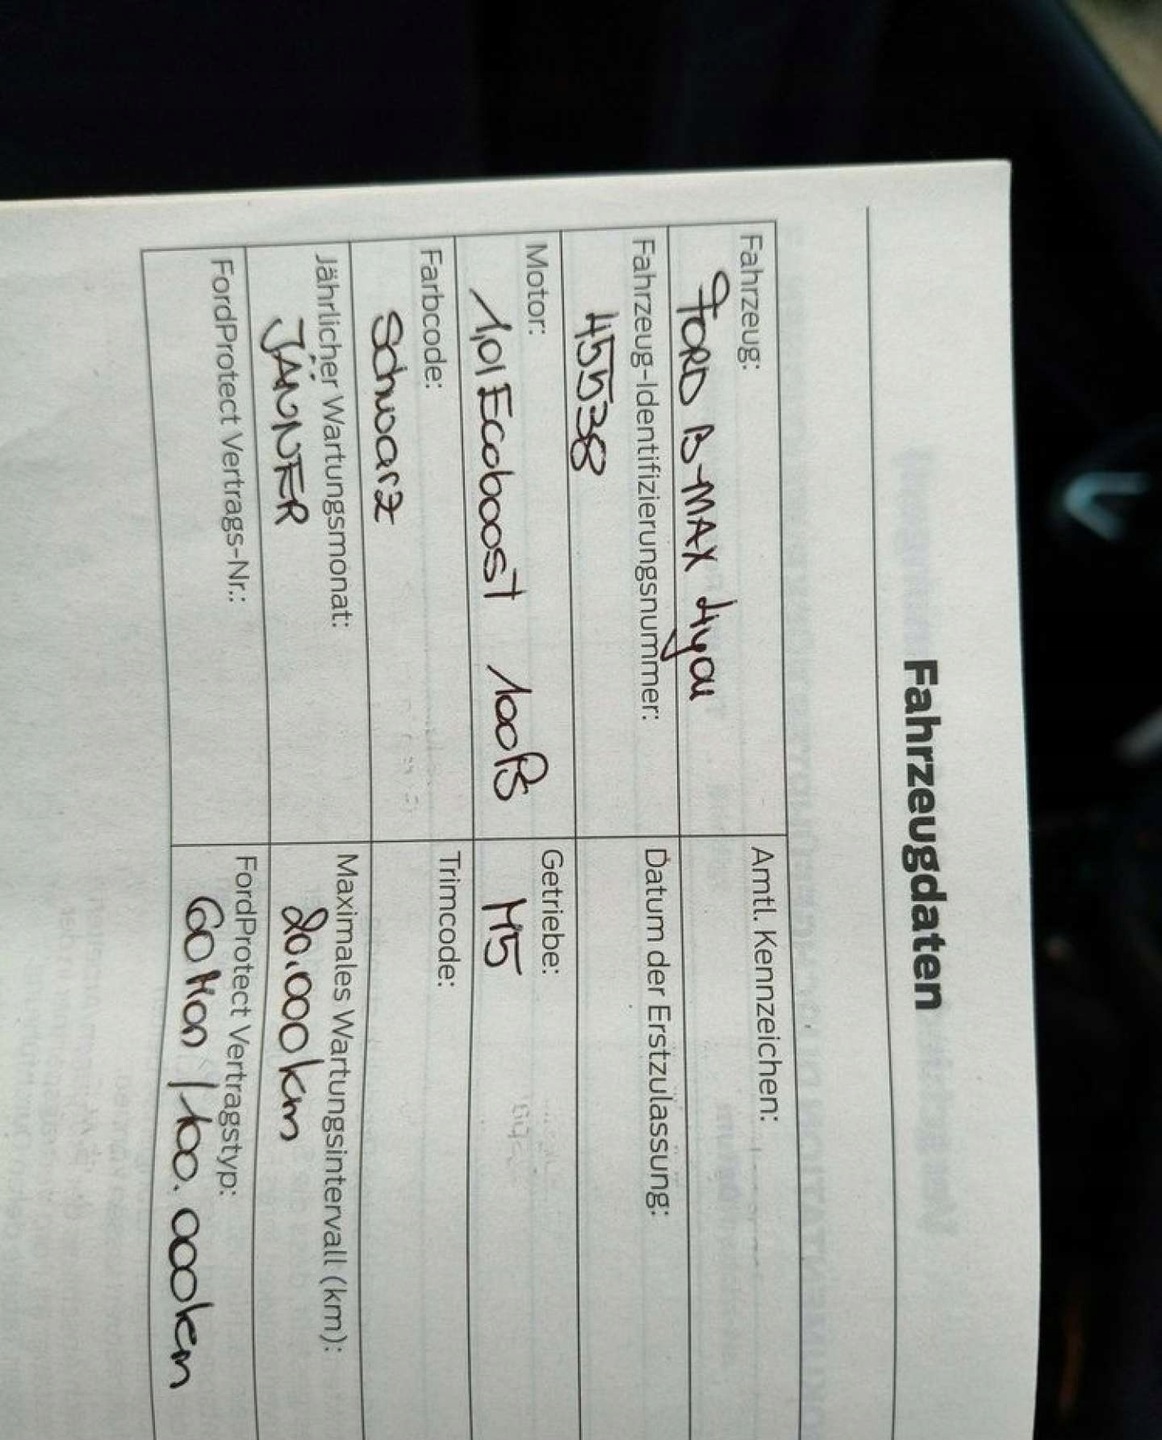 Fahrzeugdaten
Fahrzeug:
FORD B-MAX 4you
Amtl. Kennzeichen:
Fahrzeug-Identifizierungsnummer:
45538
Datum der Erstzulassung:
Motor:
1,0l Ecoboost 100PS
Getriebe:
M5
Farbcode:
Schwarz
Trimcode:
Jährlicher Wartungsmonat:
JÄNNER
Maximales Wartungsintervall (km):
20.000km
FordProtect Vertrags-Nr.:
FordProtect Vertragstyp:
60 Mon / 100.000km